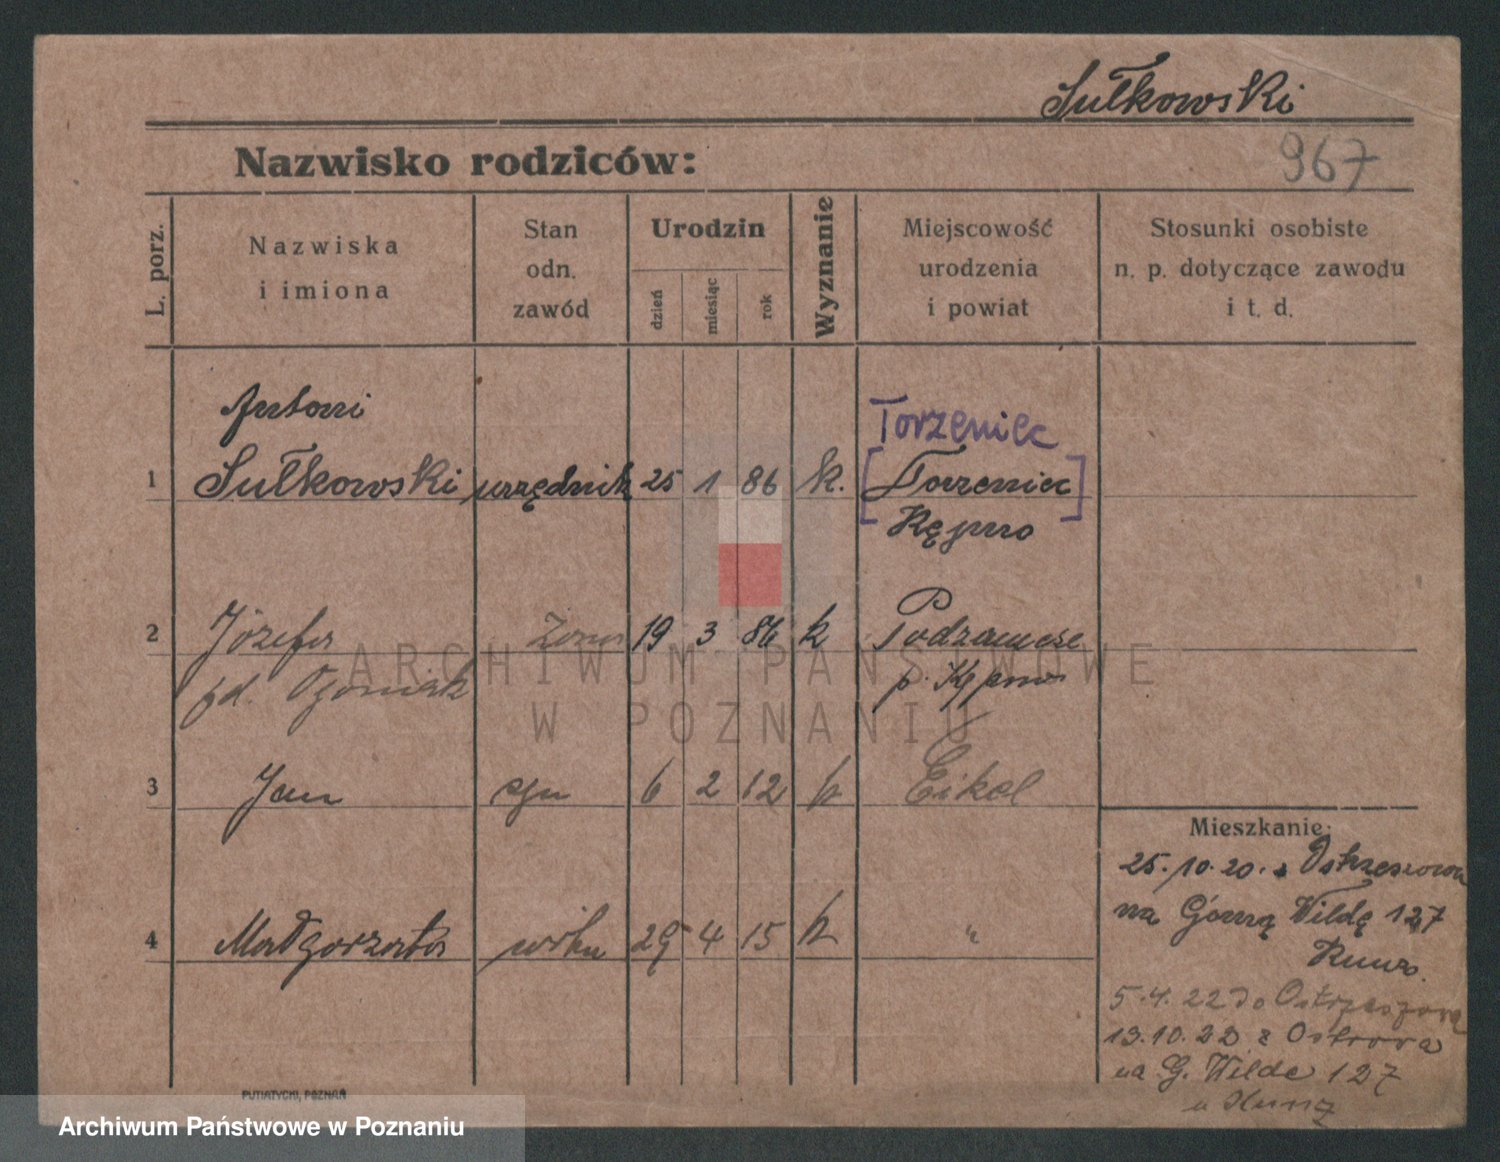 Sułkowski
Nazwisko rodziców:
967
L. porz.
Nazwiska
i imiona
Stan
odn.
zawód
Urodzin
dzień
miesiąc
rok
Wyznanie
Miejscowość
urodzenia
i powiat
Stosunki osobiste
n. p. dotyczące zawodu
i t. d.
Antoni
Torzeniec
1 Sułkowski urzędnik 25 1 86 k. [Torzeniec]
Kępno
2 Józefa żona 19 3 86 k Podzamcze
p. Kępno
3 Jan syn 6 2 12 k Eikel
4 Małgorzata 29 4 15 k "
Mieszkanie:
25.10.20. z Ostrzeszowa
na Górną Wildę 127
5.4.22 do Ostrzeszowa
13.10.22 z Ostrowa
na G. Wilde 127
PUTIATYCKI, POZNAŃ
ARCHIWUM PAŃSTWOWE
W POZNANIU
Archiwum Państwowe w Poznaniu